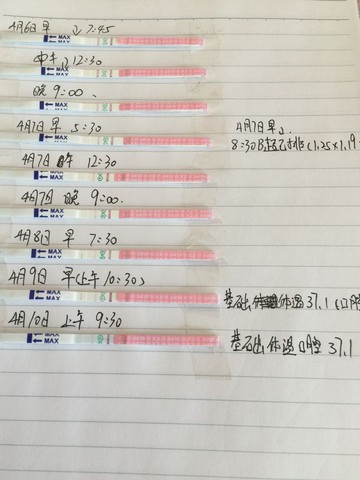 4月6日早 7:45
MAX
MAX
中午 12:30
MAX
MAX
晚 9:00.
MAX
MAX
4月7日 早 5:30
4月7日早
MAX
MAX
8:30B超已排(1.25×1.19
4月7日 午 12:30
MAX
MAX
4月7日 晚 9:00.
MAX
MAX
4月8日 早 7:30
MAX
MAX
4月9日 早(上午10:30)
MAX
MAX
基础体温37.1(口腔
4月10日 上午 9:30
MAX
MAX
基础体温口腔37.1